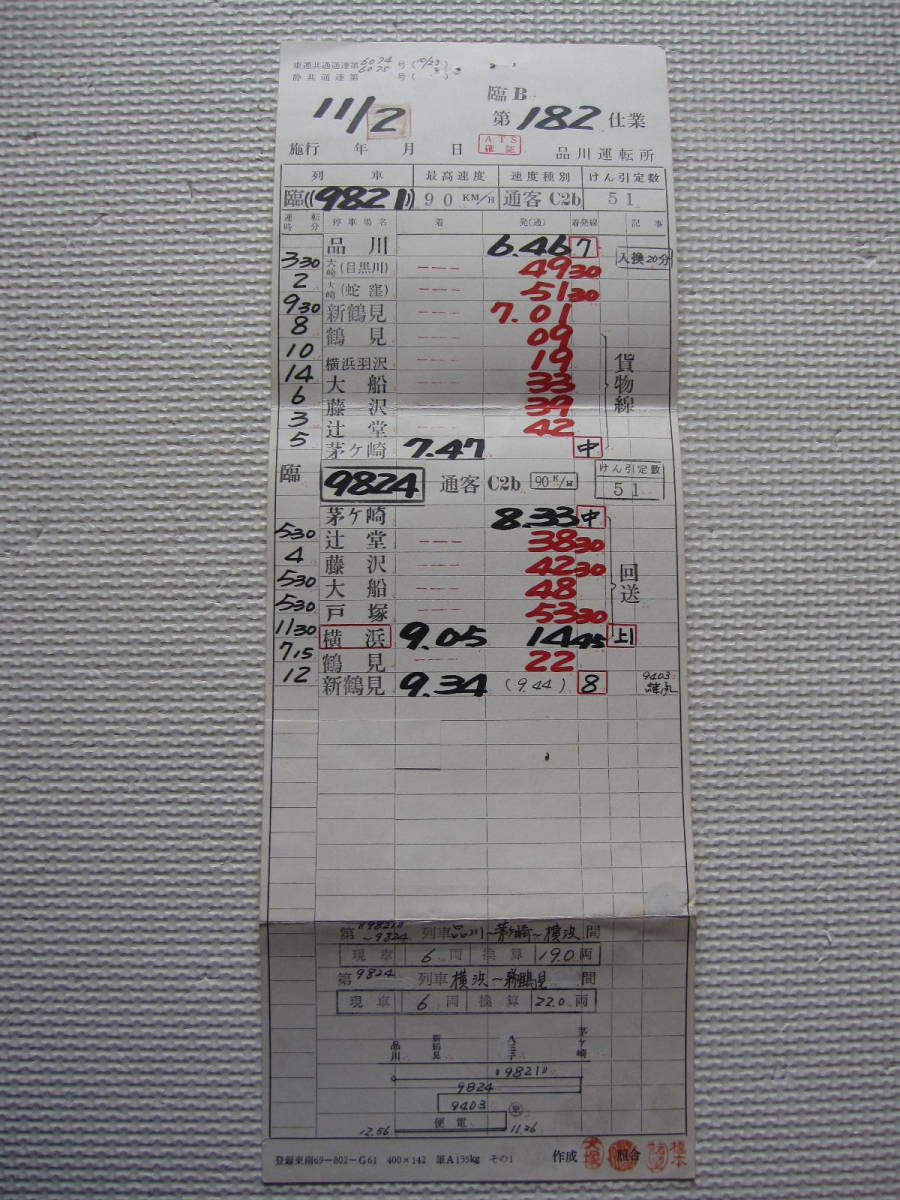 東運共通通達第6074号(10/23)
静共通達第6075号( 〃 )
臨B
11/2 第182仕業
施行 年 月 日 ATS確認 品川運転所
列車 最高速度 速度種別 けん引定数
臨((9821)) 90KM/H 通客C2b 51
運転時分 停車場名 着 発(通) 着発線 記事
品川 6.46 7 入換20分
3 30 大崎(目黒川) --- 49 30
2 大崎(蛇窪) --- 51 30
9 30 新鶴見 7.01
8 鶴見 --- 09
10 横浜羽沢 --- 19 貨物線
14 大船 --- 33
6 藤沢 --- 39
3 辻堂 --- 42
5 茅ケ崎 7.47 中
臨 9824 通客C2b 90K/H けん引定数 51
茅ケ崎 8.33 中
5 30 辻堂 --- 38 30
4 藤沢 --- 42 30
5 30 大船 --- 48 回送
5 30 戸塚 --- 53 30
11 30 横浜 9.05 14 45 上1
7 15 鶴見 --- 22
12 新鶴見 9.34 (9.44) 8 9403
第〃9821〃~9824列車品川~茅ケ崎~横浜間
現車 6両 換算 19.0両
第9824列車横浜~新鶴見間
現車 6両 換算 22.0両
品川 新鶴見 八王子 茅ケ崎
〃9821〃
9824
9403
便電
12.56 11.26
登録東南69-802-G61 400×142 筆A135kg その1 作成 大塚 照合 橋本